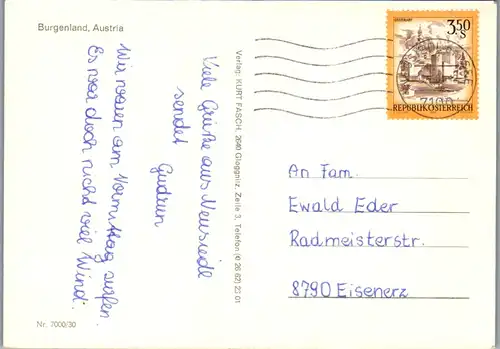 Burgenland, Austria
Wir waren am Vormittag surfen.
Es war doch nicht viel Wind.
Viele Grüße aus Neusiedl
sendet
Gudrun
Verlag: KURT FASCH, 2640 Gloggnitz, Zeile 3, Telefon (0 26 62) 23 01
3.50
S
REPUBLIK ÖSTERREICH
7100
An Fam.
Ewald Eder
Radmeisterstr.
8790 Eisenerz
Nr. 7000/30